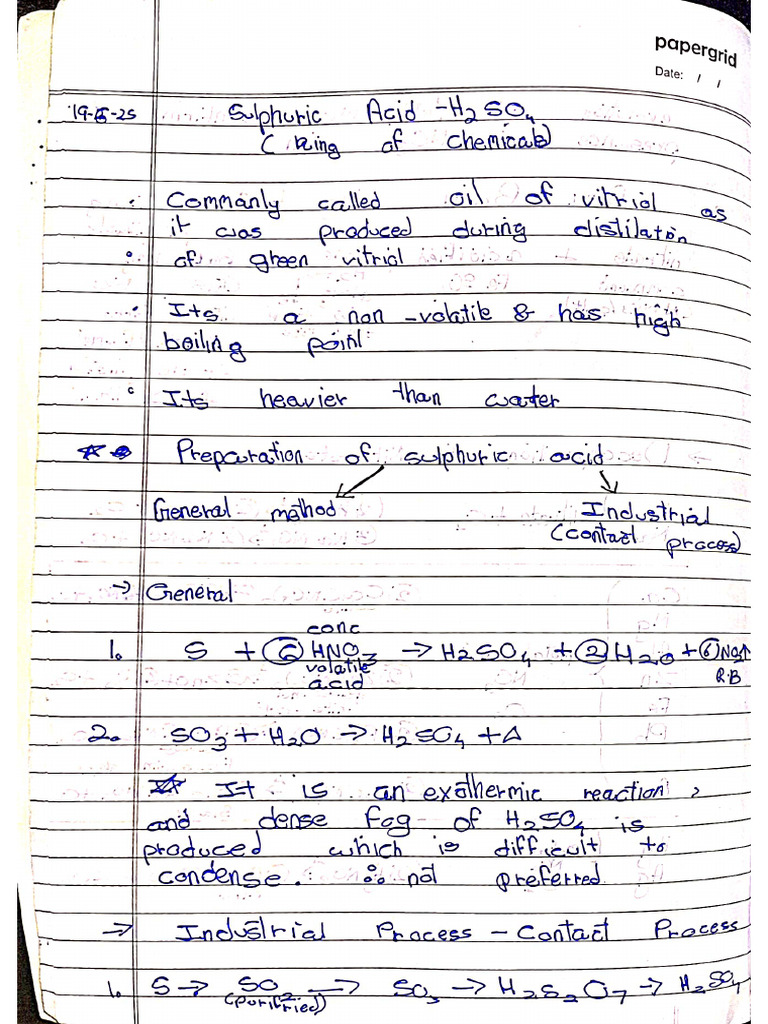 papergrid
Date: / /
19-8-25 Sulphuric Acid - H₂SO₄
(King of chemicals)
Commonly called oil of vitriol as
it was produced during distilaton
of green vitriol
Its a non-volatile & has high
boiling point
Its heavier than water
Preparation of sulphuric acid
General method Industrial
(contact process)
→ General
conc
1. S + 6 HNO₃ → H₂SO₄ + 2 H₂O + 6 NO₂↑
volatile R.B
acid
2. SO₃ + H₂O → H₂SO₄ + Δ
☆ It is an exothermic reaction,
and dense fog of H₂SO₄ is
produced which is difficult to
condense. ∴ not preferred
→ Industrial Process - Contact Process
1. S → SO₂ → SO₃ → H₂S₂O₇ → H₂SO₄
(puritried)